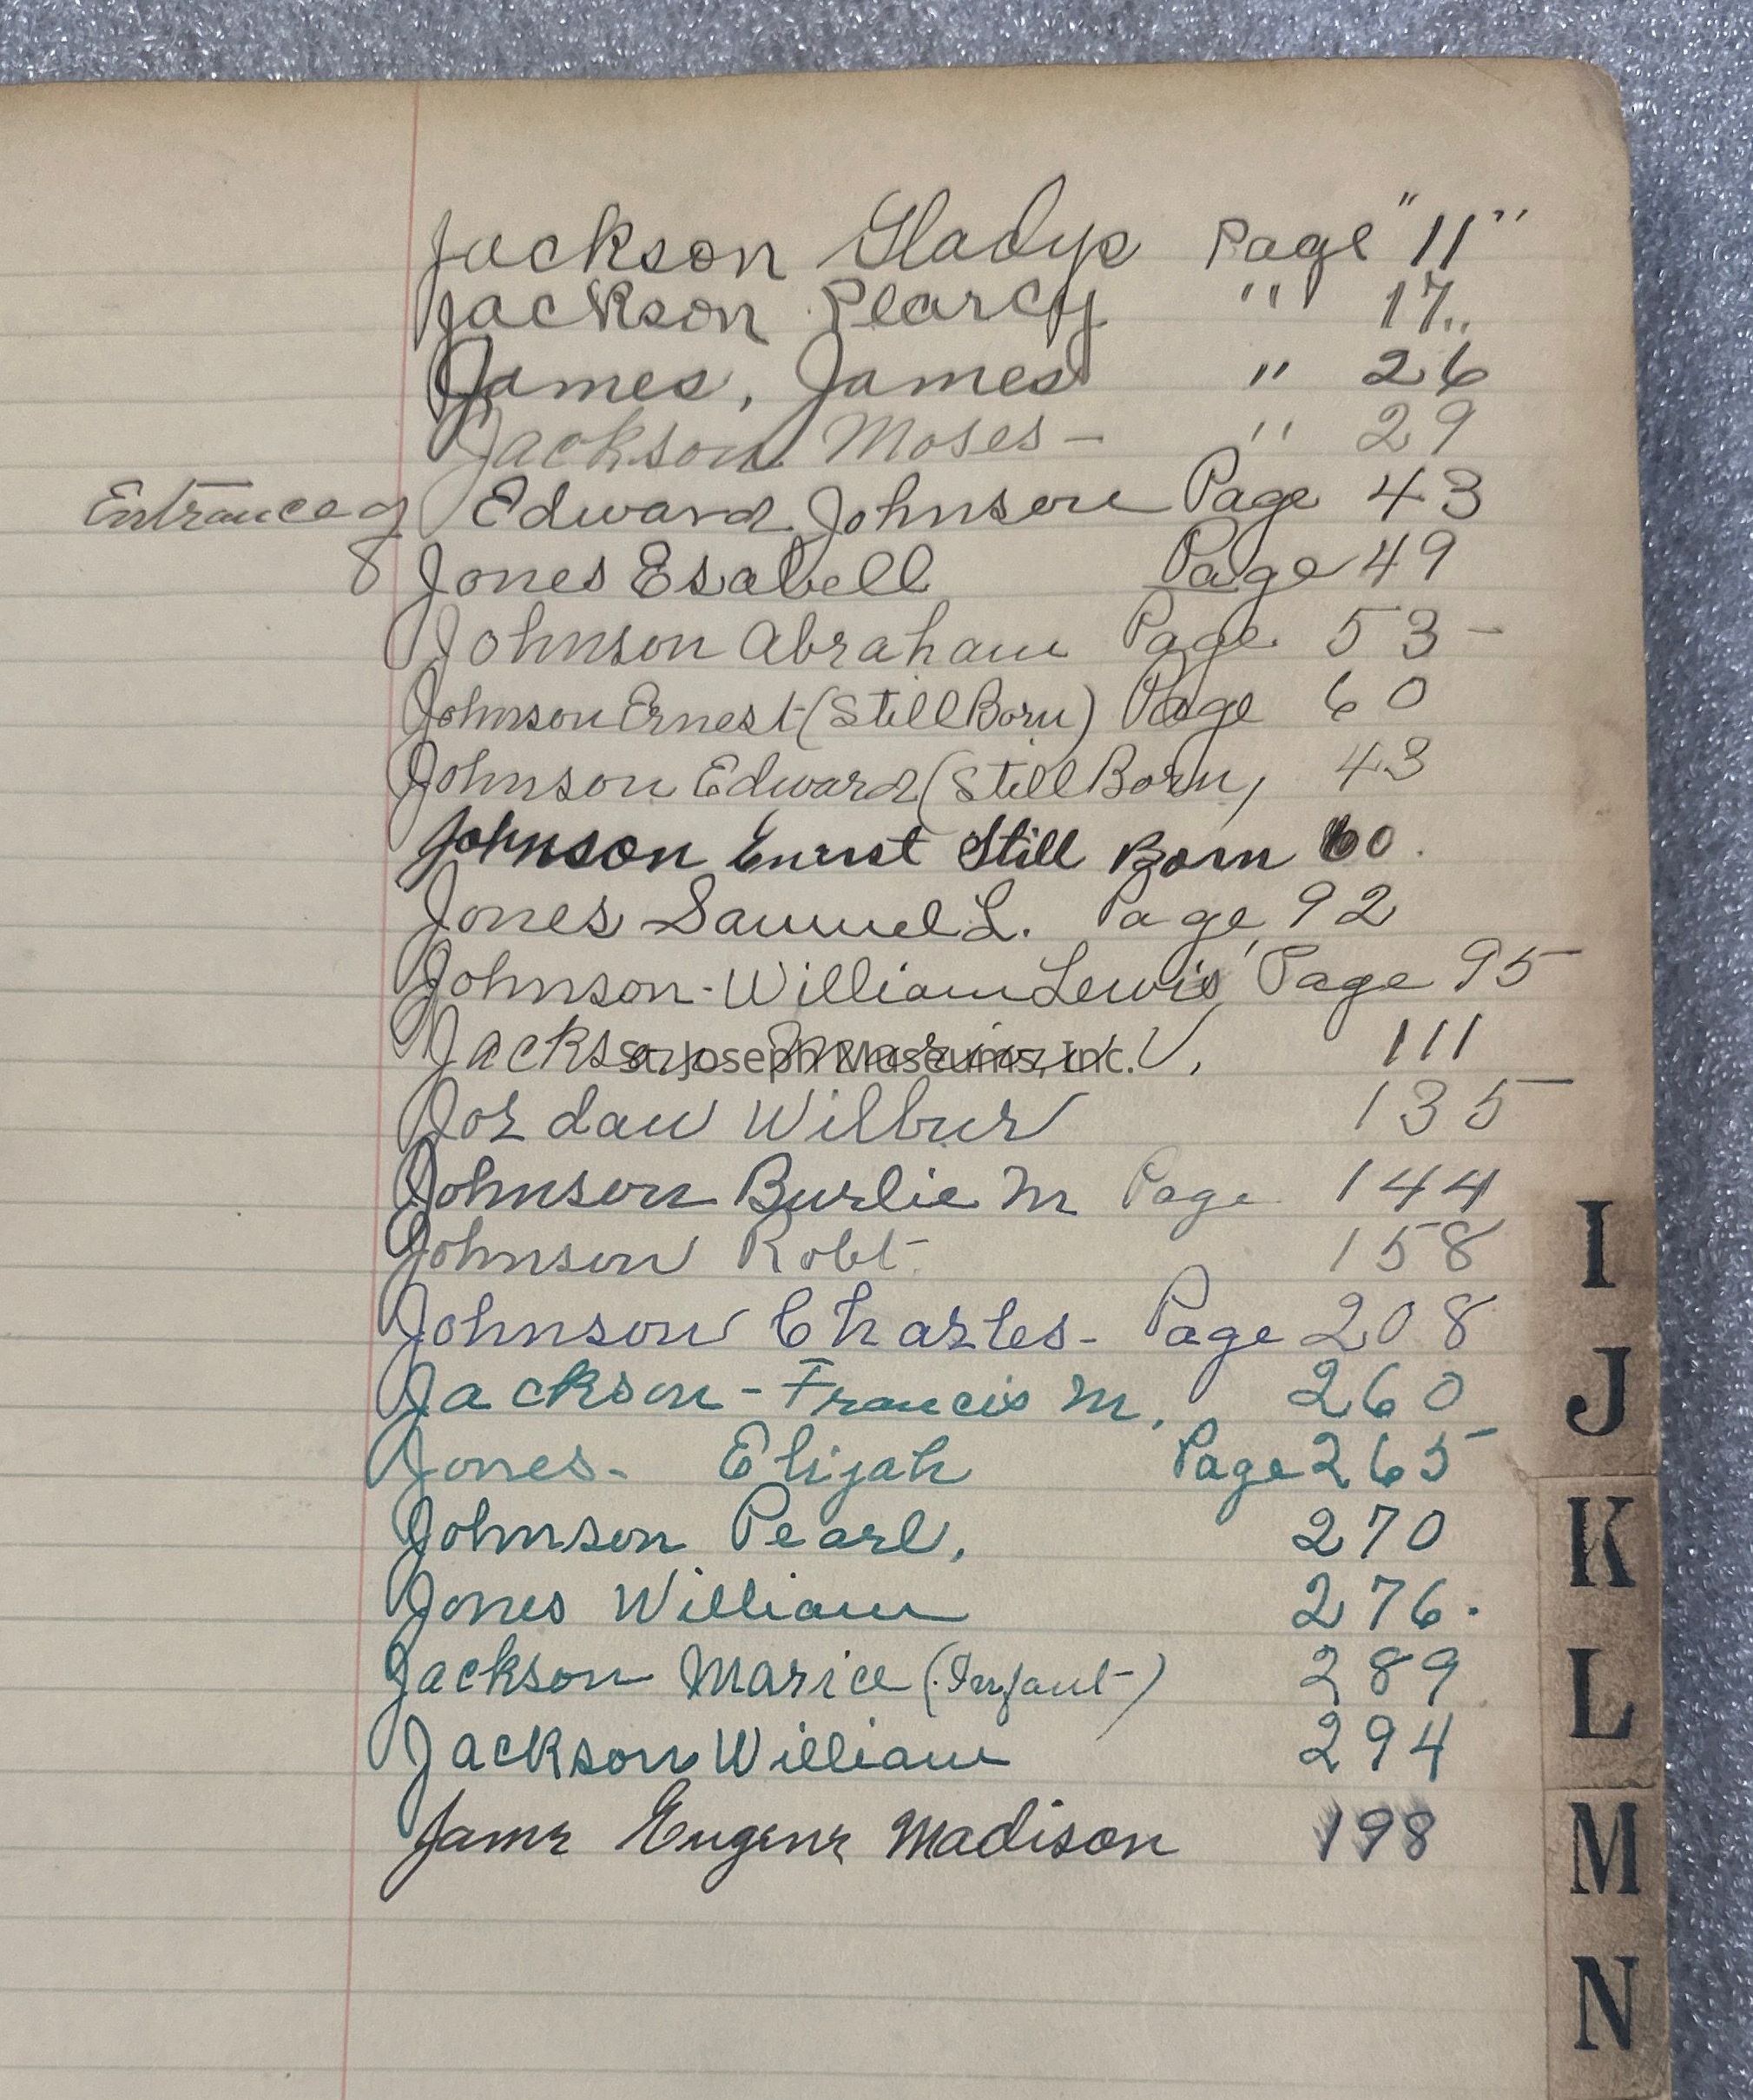 Jackson Gladys Page "11"
Jackson Pearcy " 17..
James, James " 26
Jackson Moses - " 29
Entrance of Edward Johnson Page 43
8 Jones Esabell Page 49
Johnson Abraham Page 53-
Johnson Ernest (Still Born) Page 60
Johnson Edward (Still Born) 43
Johnson Ernest Still Born 60.
Jones Samuel L. Page 92
Johnson-William Lewis Page 95
Jackson V. 111
St. Joseph Museums, Inc.
Jordan Wilbur 135
Johnson Burlie M Page 144
Johnson Robt 158
Johnson Charles - Page 208
Jackson - Francis M. 260
Jones - Elijah Page 265
Johnson Pearl, 270
Jones William 276.
Jackson Marice (Infant) 289
Jackson William 294
Jame Eugene Madison 198
I
J
K
L
M
N